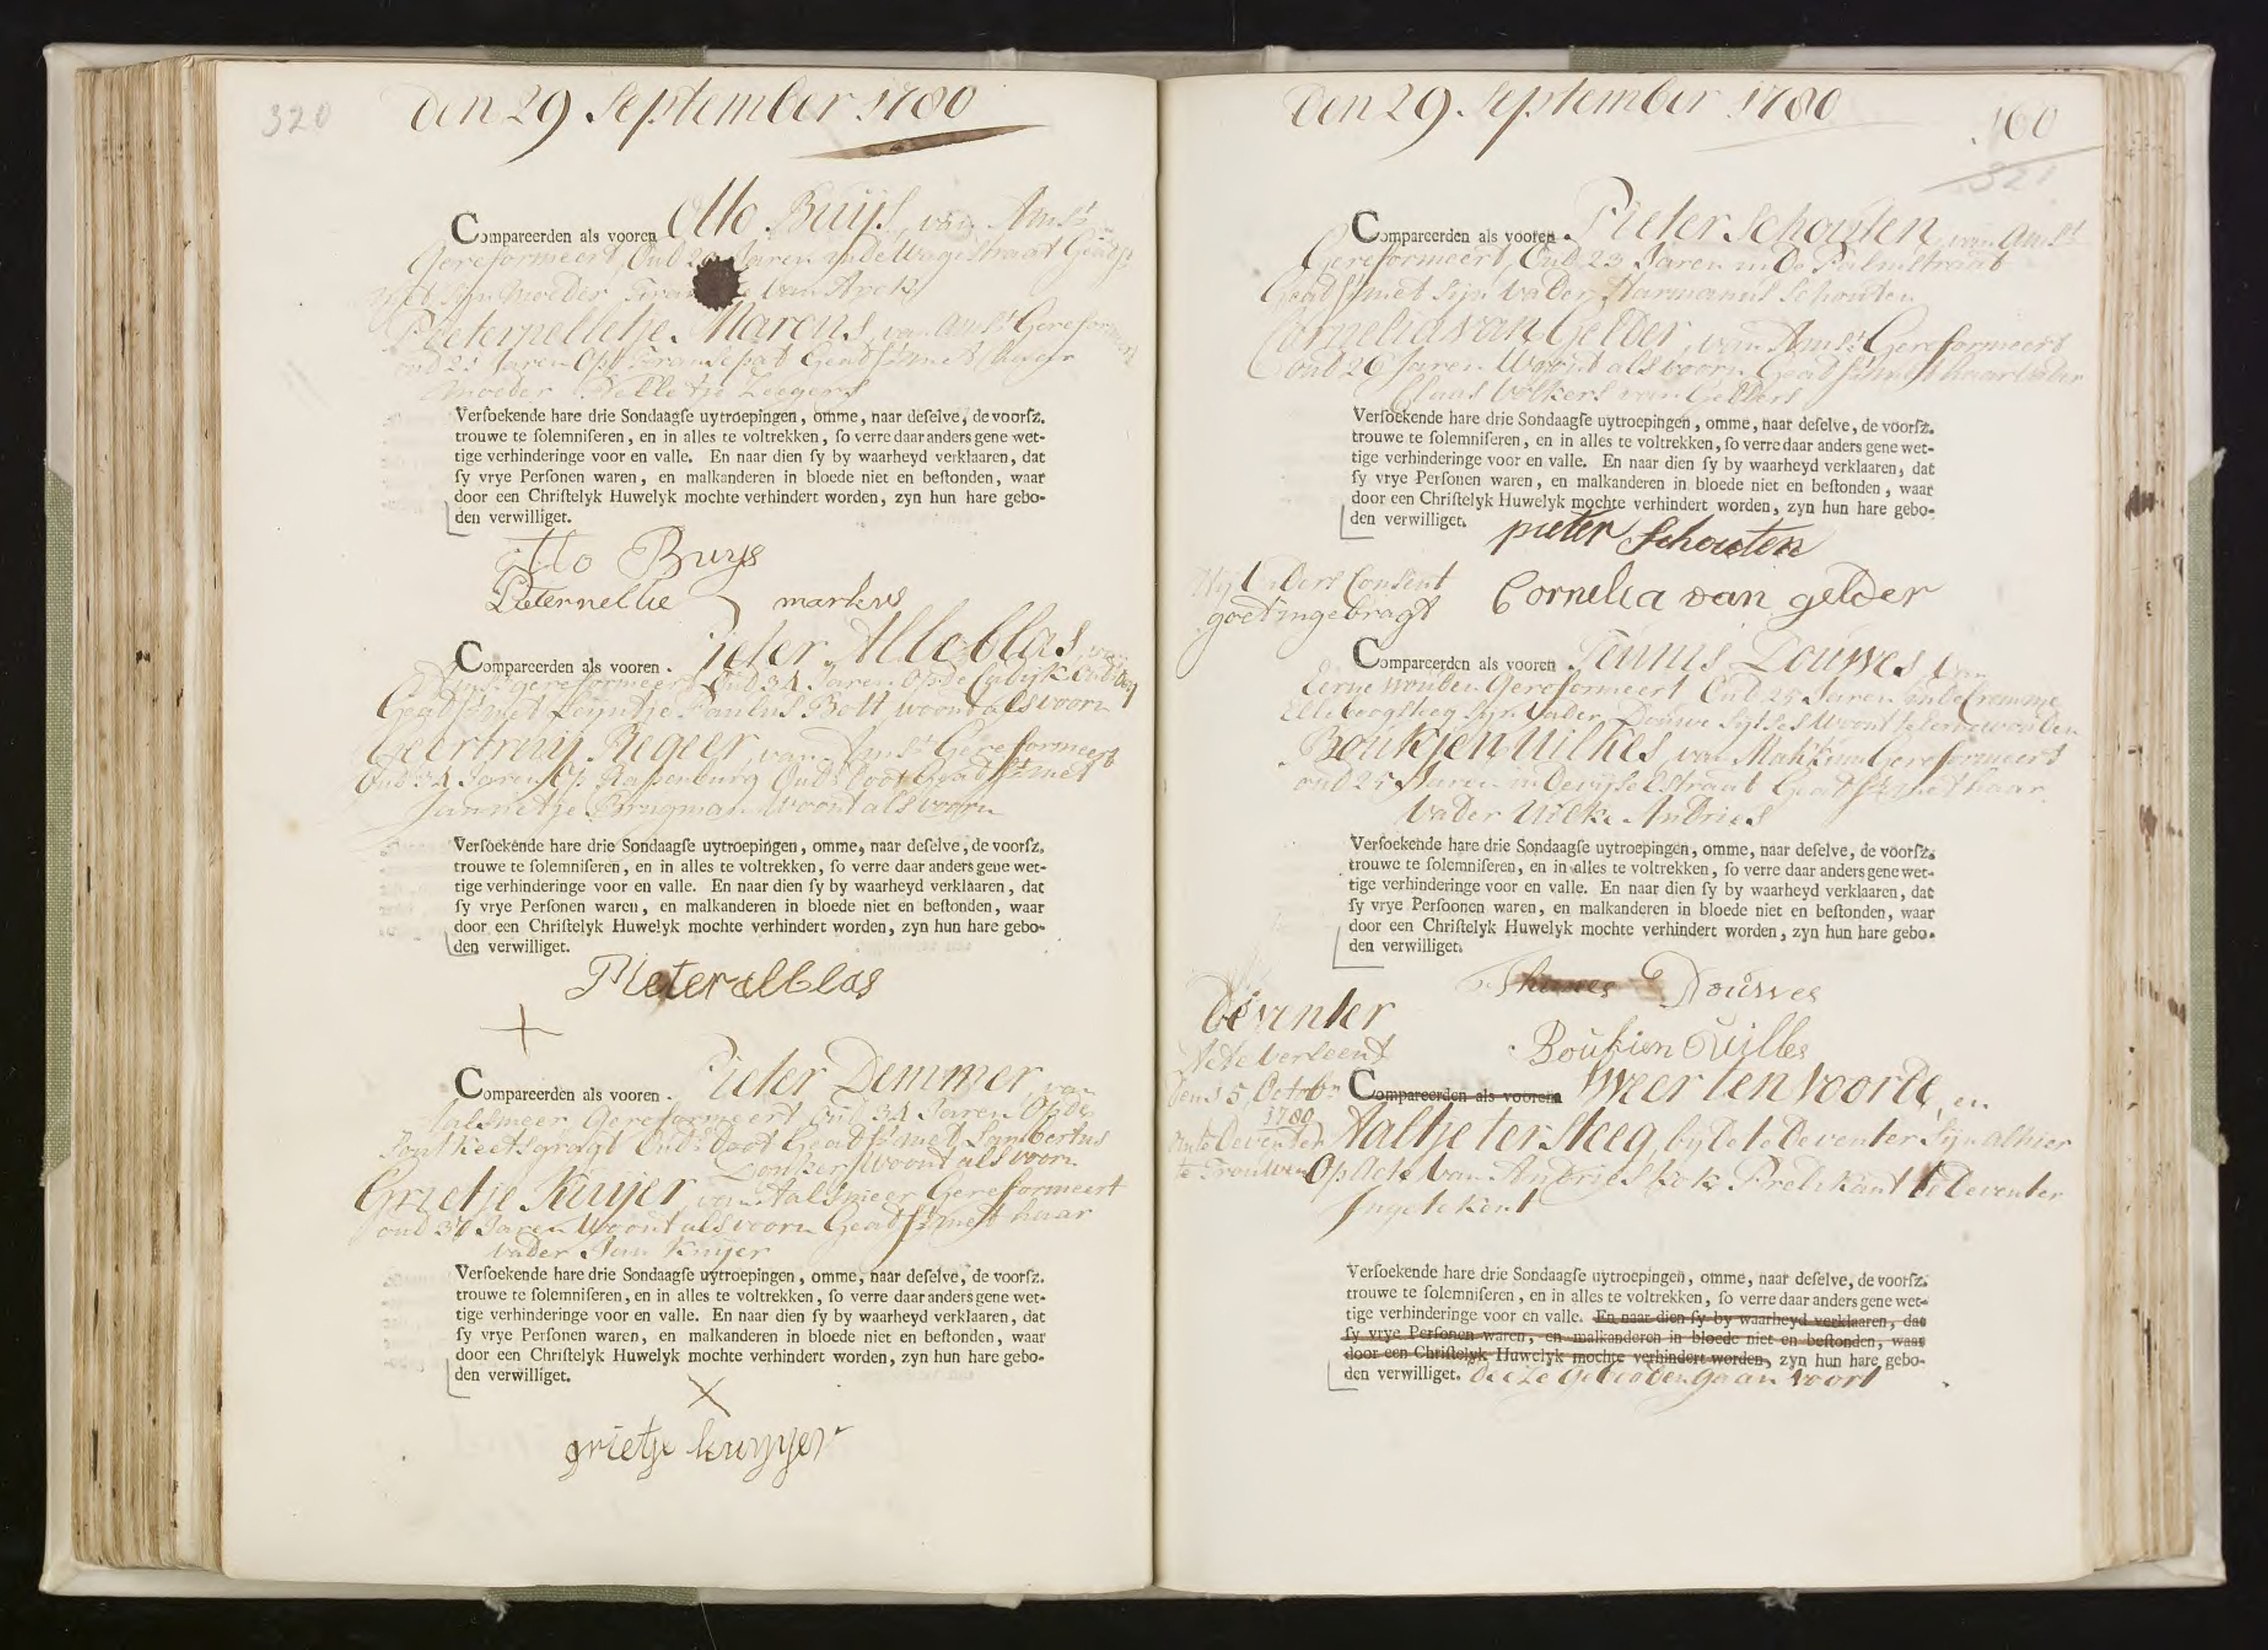 320
Den 29 September 1780
Compareerden als vooren Otto Buijs, van Amst
Gereformeert, Oud Jaren in de Wagestraat Geadst
met sijn Moeder van Arck
Pieternelletje Marcus, van Amst Gereformeert
oud 25 Jaren Op't Franse pat Geadst met haar
moeder Pelletje Zeegers
Verſoekende hare drie Sondaagſe uytroepingen, omme, naar deſelve, de voorſz.
trouwe te ſolemniſeren, en in alles te voltrekken, ſo verre daar anders gene wet-
tige verhinderinge voor en valle. En naar dien ſy by waarheyd verklaaren, dat
ſy vrye Perſonen waren, en malkanderen in bloede niet en beſtonden, waar
door een Chriſtelyk Huwelyk mochte verhindert worden, zyn hun hare gebo-
den verwilliget.
otto Buys
Pieternellie markus
Compareerden als vooren. Pieter Alleblas, van
Amst gereformeert Oud 34 Jaren Op de Cadijk Ouds doot
Geadst met Leyntje Paulus Bott, woont als voorn
Geertruij Regeer, van Amst Gereformeert
Oud 34 Jaren Op Rapenburg Ouds doot Geadst met
Jannetje Brugman Woont als voorn
Verſoekende hare drie Sondaagſe uytroepingen, omme, naar deſelve, de voorſz.
trouwe te ſolemniſeren, en in alles te voltrekken, ſo verre daar anders gene wet-
tige verhinderinge voor en valle. En naar dien ſy by waarheyd verklaaren, dat
ſy vrye Perſonen waren, en malkanderen in bloede niet en beſtonden, waar
door een Chriſtelyk Huwelyk mochte verhindert worden, zyn hun hare gebo-
den verwilliget.
Pieter alblas
Compareerden als vooren. Pieter Demmer, van
Aalsmeer Gereformeert Oud 34 Jaren Op de
Soutkeetsgragt Ouds doot Geadst met Lambertus
Donker Woont als voorn
Grietje Kuijer van Aalsmeer Gereformeert
oud 37 Jaren Woont als voorn Geadst met haar
vader Jan Kuijer
Verſoekende hare drie Sondaagſe uytroepingen, omme, naar deſelve, de voorſz.
trouwe te ſolemniſeren, en in alles te voltrekken, ſo verre daar anders gene wet-
tige verhinderinge voor en valle. En naar dien ſy by waarheyd verklaaren, dat
ſy vrye Perſonen waren, en malkanderen in bloede niet en beſtonden, waar
door een Chriſtelyk Huwelyk mochte verhindert worden, zyn hun hare gebo-
den verwilliget.
grietje kuyyer
Den 29 September 1780
160
321
Compareerden als vooren. Pieter Schouten, van Amst
Gereformeert, Oud 23 Jaren in de Palmstraat
Geadst met sijn Vader Harmanus Schouten
Cornelia van Gelder, van Amst Gereformeert
oud 26 Jaren Woont als voorn Geadst met haar Vader
Claas Volkers van Gelders
Verſoekende hare drie Sondaagſe uytroepingen, omme, naar deſelve, de voorſz.
trouwe te ſolemniſeren, en in alles te voltrekken, ſo verre daar anders gene wet-
tige verhinderinge voor en valle. En naar dien ſy by waarheyd verklaaren, dat
ſy vrye Perſonen waren, en malkanderen in bloede niet en beſtonden, waar
door een Chriſtelyk Huwelyk mochte verhindert worden, zyn hun hare gebo-
den verwilliget.
pieter Schouten
Cornelia van gelder
Vaders Consent
goet ingebragt
Compareerden als vooren Teunis Douwes, van
Eernewouden Gereformeert Oud 25 Jaren in de Cromme
Elleboogsteeg sijn Vader Douwe Sijtses Woont te Eernewouden
Boukjen Uilkes, van Makkum Gereformeert
oud 25 Jaren in de Vijselstraat Geadst met haar
Vader Uilke Andries
Verſoekende hare drie Sondaagſe uytroepingen, omme, naar deſelve, de voorſz.
trouwe te ſolemniſeren, en in alles te voltrekken, ſo verre daar anders gene wet-
tige verhinderinge voor en valle. En naar dien ſy by waarheyd verklaaren, dat
ſy vrye Perſoonen waren, en malkanderen in bloede niet en beſtonden, waar
door een Chriſtelyk Huwelyk mochte verhindert worden, zyn hun hare gebo-
den verwilliget.
Douwes
Boukien Uilkes
Deventer
Acte verleent
den 15 Octobr
1780
om te Deventer
te Trouwen
Compareerden als vooren Weer ten Voorde, en
Aaltje ter Steeg, beyde te Deventer Sijn alhier
Op Acte van Andries Kok Predikant te Deventer
Ingetekent
Verſoekende hare drie Sondaagſe uytroepingen, omme, naar deſelve, de voorſz.
trouwe te ſolemniſeren, en in alles te voltrekken, ſo verre daar anders gene wet-
tige verhinderinge voor en valle. En naar dien ſy by waarheyd verklaaren, dat
ſy vrye Perſonen waren, en malkanderen in bloede niet en beſtonden, waar
door een Chriſtelyk Huwelyk mochte verhindert worden, zyn hun hare gebo-
den verwilliget. deeze Gebooden gaan voort